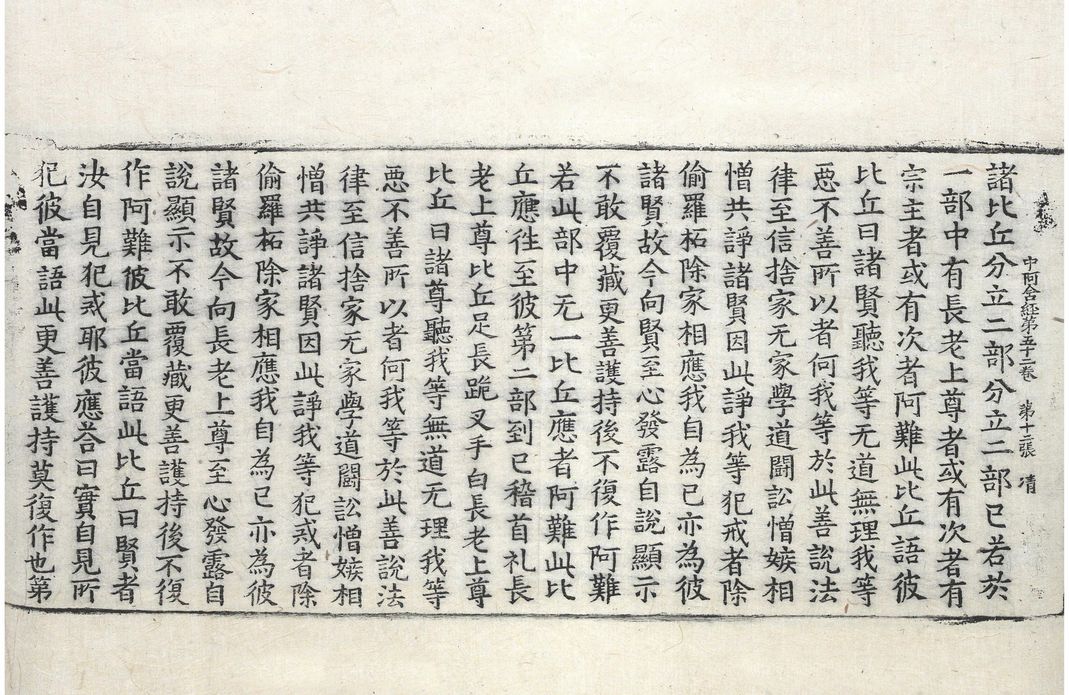 中阿含經第五十二卷 第十二張 清
諸比丘分立二部分立二部已若於
一部中有長老上尊者或有次者有
宗主者或有次者阿難此比丘語彼
比丘曰諸賢聽我等无道無理我等
惡不善所以者何我等於此善說法
律至信捨家无家學道鬪訟憎嫉相
憎共諍諸賢因此諍我等犯戒者除
偷羅柘除家相應我自為已亦為彼
諸賢故今向賢至心發露自說顯示
不敢覆藏更善護持後不復作阿難
若此部中无一比丘應者阿難此比
丘應徃至彼第二部到已稽首礼長
老上尊比丘足長跪叉手白長老上尊
比丘曰諸尊聽我等無道无理我等
惡不善所以者何我等於此善說法
律至信捨家无家學道鬪訟憎嫉相
憎共諍諸賢因此諍我等犯戒者除
偷羅柘除家相應我自為已亦為彼
諸賢故今向長老上尊至心發露自
說顯示不敢覆藏更善護持後不復
作阿難彼比丘當語此比丘曰賢者
汝自見犯戒耶彼應荅曰實自見所
犯彼當語此更善護持莫復作也第